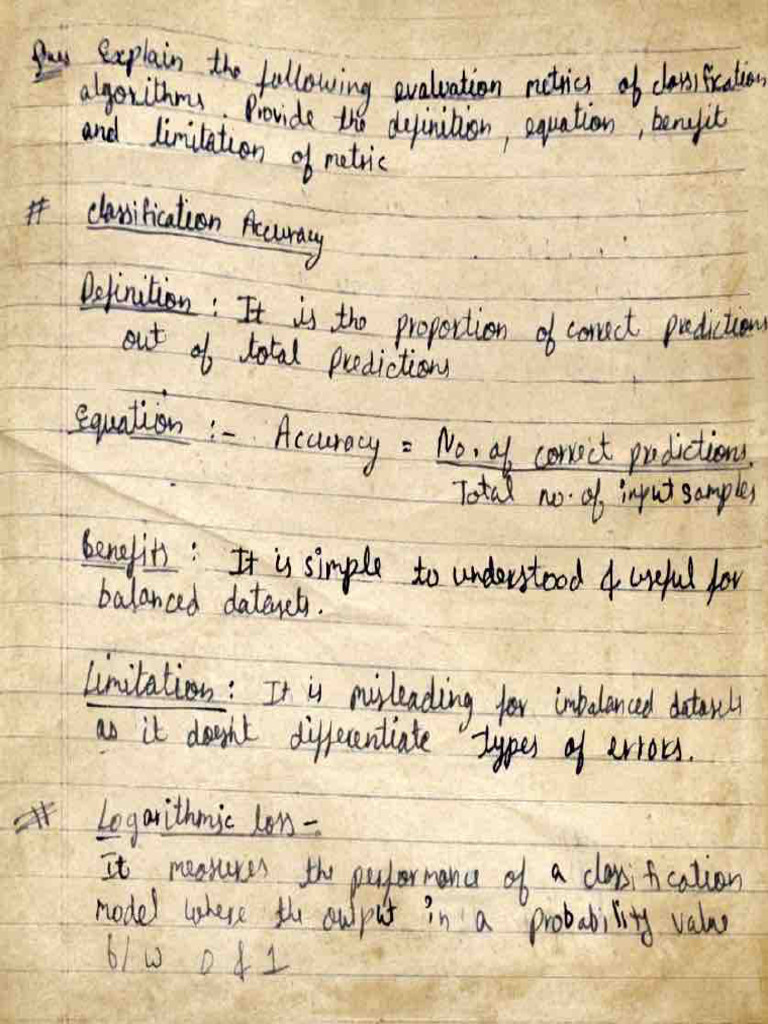 Ques Explain the following evaluation metrics of classification
algorithms. Provide the definition, equation, benefit
and limitation of metric
# Classification Accuracy
Definition : It is the proportion of correct predictions
out of total predictions
Equation :- Accuracy = No. of correct predictions.
Total no. of input samples
Benefits : It is simple to understood & useful for
balanced datasets.
Limitation : It is misleading for imbalanced datasets
as it doesn't differentiate types of errors.
# Logarithmic loss -
It measures the performance of a classification
model where the output in a probability value
b/w 0 & 1